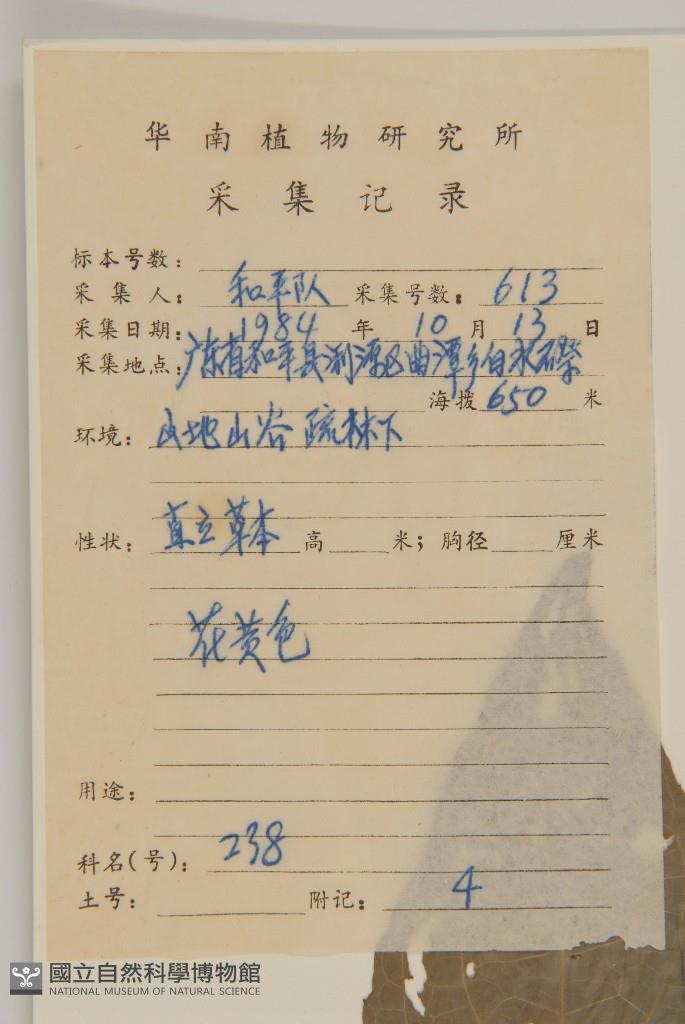 华南植物研究所
采集记录
标本号数：
采集人：和平队 采集号数：613
采集日期：1984年10月13日
采集地点：广东省和平县浰源区曲潭乡白水磜
海拨650米
环境：山地山谷疏林下
性状：直立草本 高 米；胸径 厘米
花黄色
用途：
科名(号)：238
土号： 附记：4
國立自然科學博物館
NATIONAL MUSEUM OF NATURAL SCIENCE